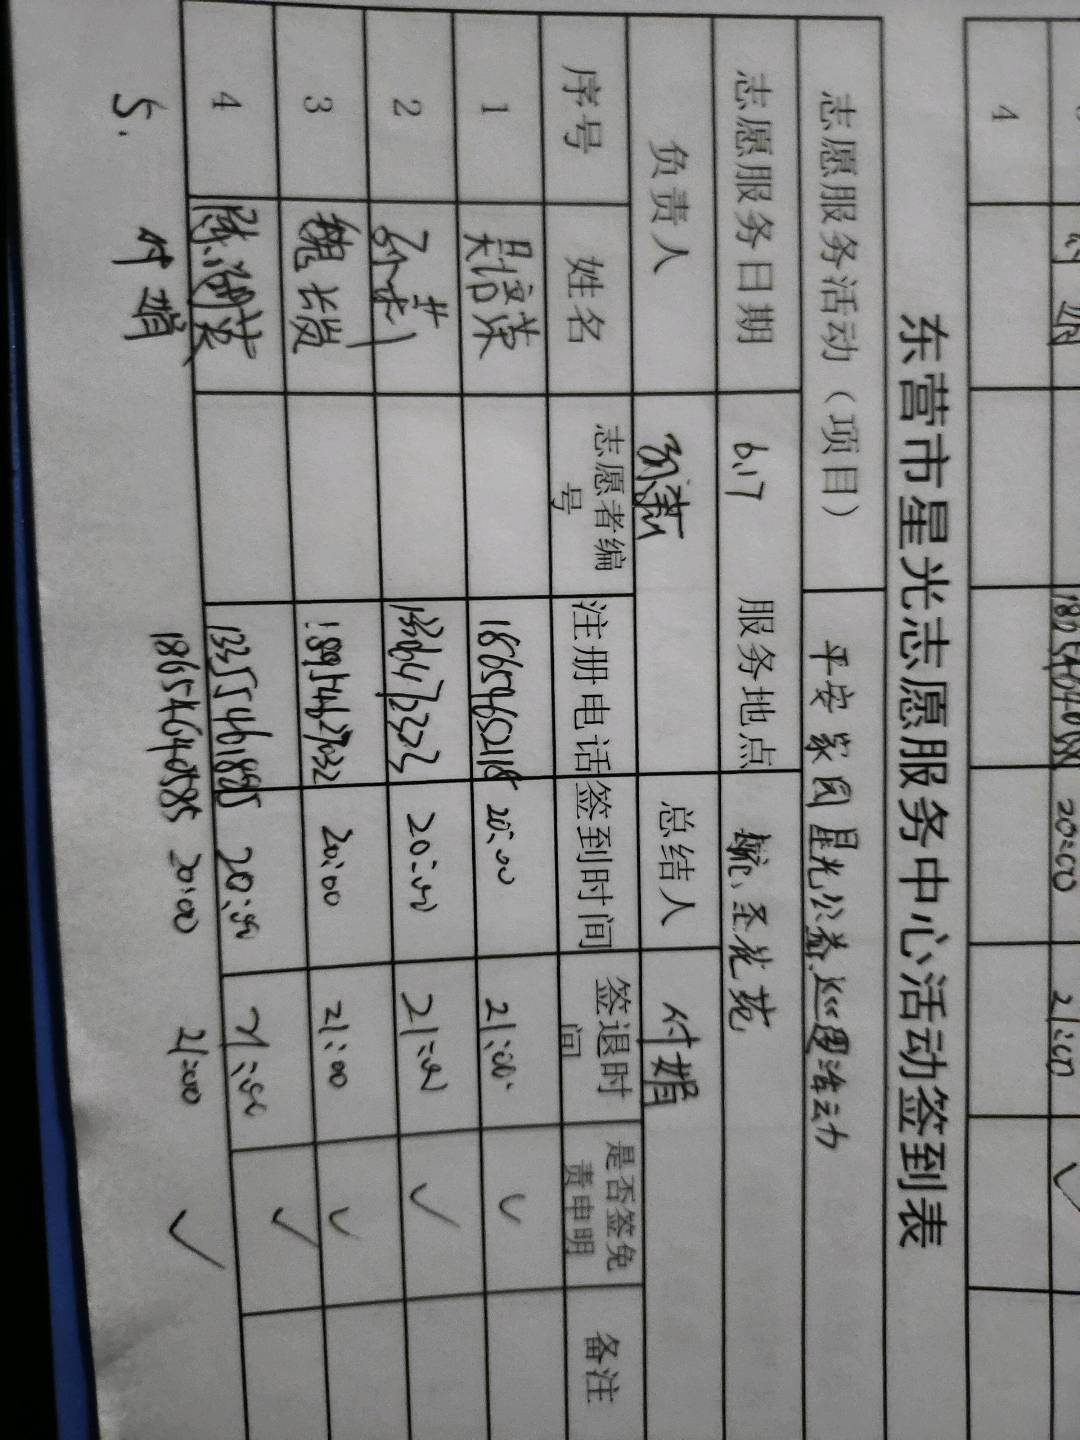 4
20:00 21:00 √
东营市星光志愿服务中心活动签到表
志愿服务活动（项目） 平安家园星光公益巡逻活动
志愿服务日期 6.17 服务地点 圣花苑
负责人 总结人 付娟
序号 姓名 志愿者编号 注册电话 签到时间 签退时间 是否签免责申明 备注
1 18654652118 20:00 21:00 √
2 20:00 21:00 √
3 魏长贵 18954627032 20:00 21:00 √
4 13355461885 20:00 21:00 √
5. 付娟 18654640585 20:00 21:00 √